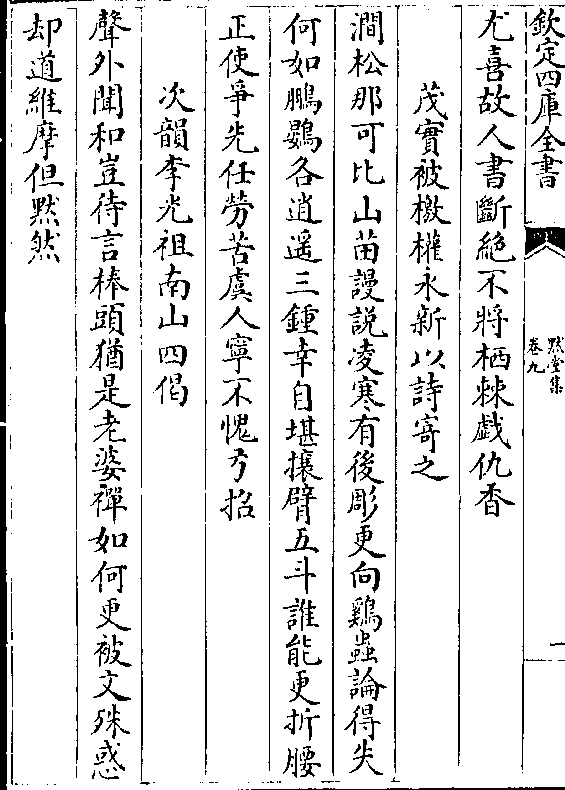 欽定四庫全書
黙堂集
卷九
一
尤喜故人書斷絶不將栖棘戯仇香
茂實被檄權永新以詩寄之
澗松那可比山苗謾説凌寒有後彫更向鷄蟲論得失
何如鵬鷃各逍遥三鍾幸自堪攘臂五斗誰能更折腰
正使爭先任勞苦虞人寧不愧弓招
次韻李光祖南山四偈
聲外聞和豈待言棒頭猶是老婆禪如何更被文殊惑
却道維摩但黙然